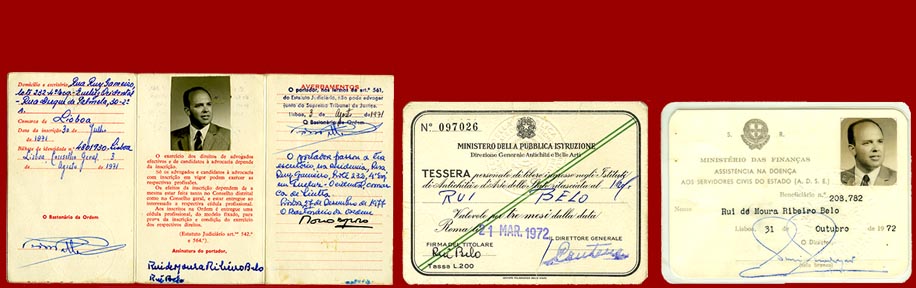 Domicílio e escritório Rua Ruy Gameiro,
Rua Duque de Palmela, 30-2º
Comarca de Lisboa
Data da inscrição 30 de Julho
de 1971
Bilhete de identidade nº Lisboa
Lisboa, Conselho Geral, 3
de Agosto de 1971
O Bastonário da Ordem
O exercício dos direitos de advogados
efectivos e de candidatos à advocacia depende
da inscrição.
Só os advogados e candidatos com inscrição
em vigor podem exercer as
respectivas profissões.
Os efeitos da inscrição dependem da
mesma estar feita tanto no Conselho distrital
como no Conselho geral, e estar entregue ao
interessado a respectiva cédula profissional.
Aos inscritos na Ordem é entregue uma
cédula profissional, de modelo fixado, para
prova da inscrição e condição do exercício
dos respectivos direitos.
(Estatuto Judiciário art.ºs 542.º
e 564.º)
Assinatura do portador,
Rui de Moura Ribeiro Belo
Rui Belo
AVERBAMENTOS
O portador, nos termos do art.º 561,
do Estatuto Judiciário, não pode advogar
junto do Supremo Tribunal de Justiça.
Lisboa, 3 de Agosto de 1971
O Bastonário da Ordem
O portador passou a ter
escritório na Rua
Ruy Gameiro, lote 232, 4º
Lisboa, 27 de Dezembro de 1977
O Bastonário da Ordem
Nº 097026
MINISTERO DELLA PUBBLICA ISTRUZIONE
Direzione Generale Antichità e Belle Arti
TESSERA personale di libero ingresso negli Istituti
di Antichità e d'Arte dello Stato rilasciata al
RUI BELO
Valevole per tre mesi dalla data
Roma, 21 MAR. 1972
IL DIRETTORE GENERALE
FIRMA DEL TITOLARE
Rui Belo
Tassa L.200
S. R.
MINISTÉRIO DAS FINANÇAS
ASSISTÊNCIA NA DOENÇA
AOS SERVIDORES CIVIS DO ESTADO (A. D. S. E.)
Beneficiário n.º
208,782
Nome Rui de Moura Ribeiro Belo
Lisboa, 31 de Outubro de 1972
O Director